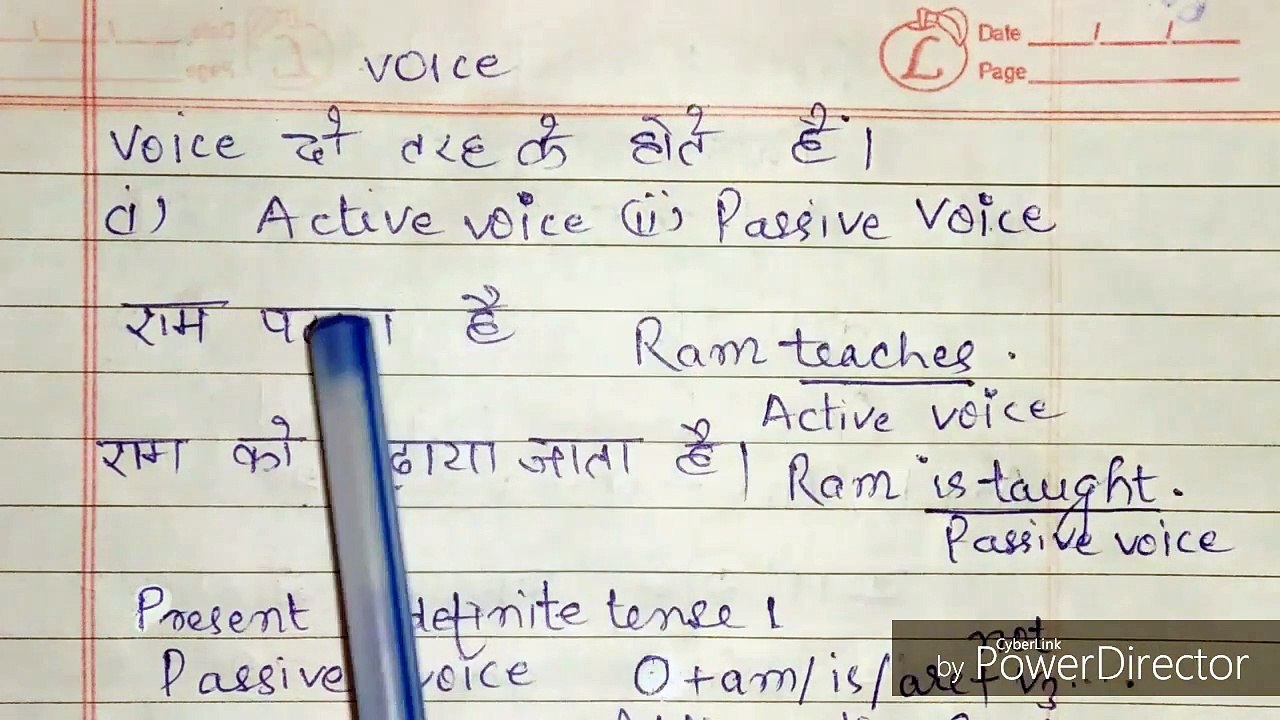 Date
Page
voice
voice दो तरह के होते हैं।
(i) Active voice (ii) Passive Voice
राम है
Ram teaches.
Active voice
राम को जाता है।
Ram is taught.
Passive voice
Present tense।
Passive voice O+am/is/are+ v3....
not
CyberLink
by PowerDirector